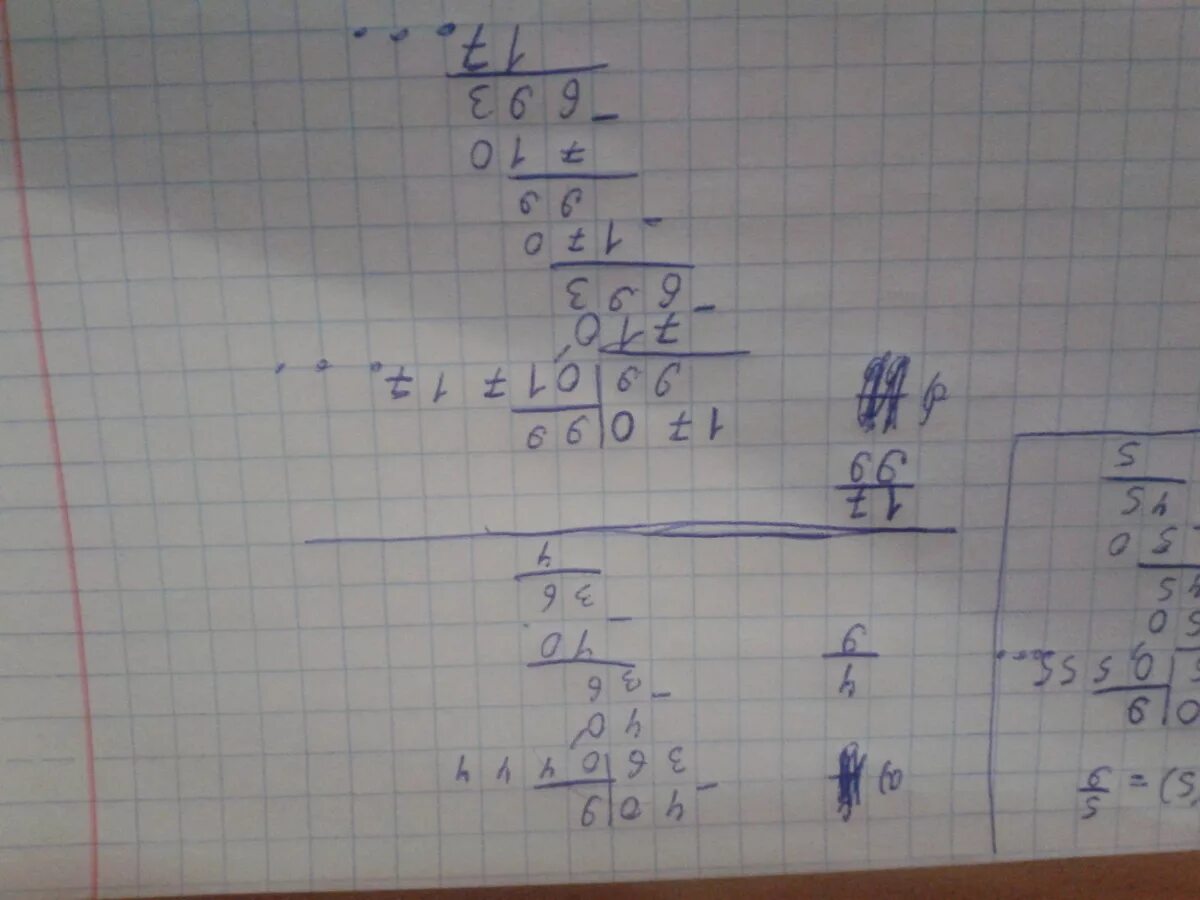 5) = 5/9
0 | 9
5 | 0,5 55...
5 0
4 5
5 0
4 5
5
a) 4/9
- 4 0 | 9
3 6 | 0,4 4 4
4 0
- 3 6
4 0
- 3 6
4
b) 17/99
1 7 0 | 9 9
9 9 | 0,1 7 1 7...
7 1 0
- 6 9 3
1 7 0
- 9 9
7 1 0
- 6 9 3
1 7...